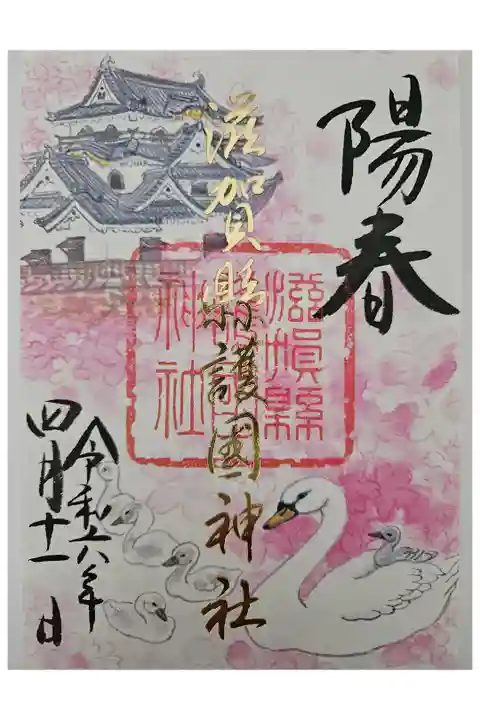 陽春
滋賀縣護国神社
滋賀縣
護國
神社
令和六年
四月十一日